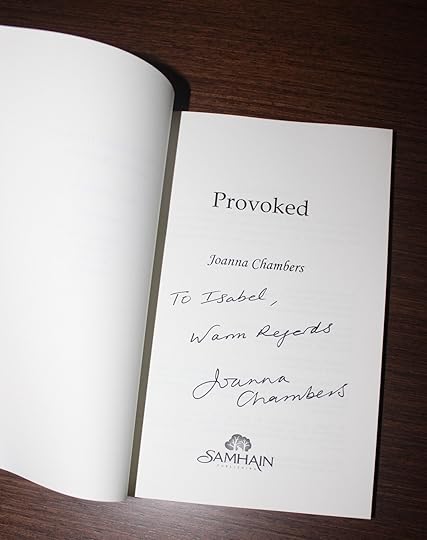 Provoked
Joanna Chambers
To Isabel,
Warm Regards
Joanna
Chambers
SAMHAIN
PUBLISHING